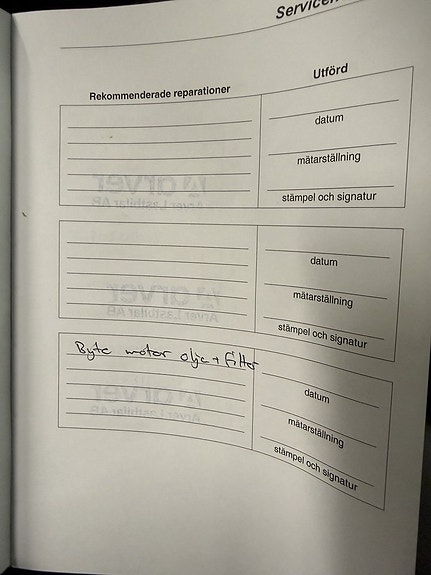 Rekommenderade reparationer
Utförd
datum
mätarställning
stämpel och signatur
datum
mätarställning
stämpel och signatur
Byte motor olje + filter
datum
mätarställning
stämpel och signatur